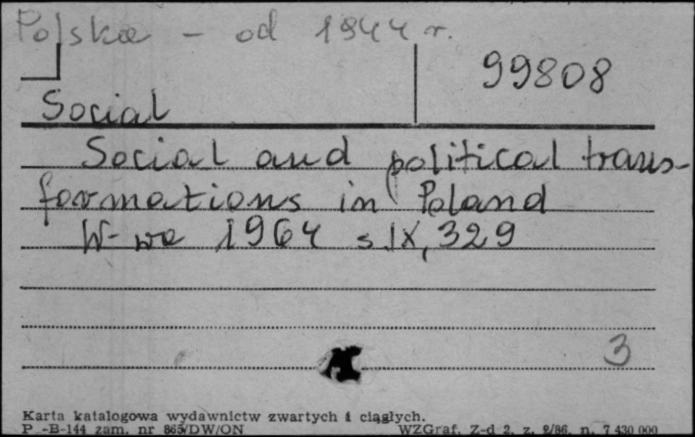 Polska - od 1944 r.
99808
Social
Social and political trans-
formations in Poland
W-wa 1964 s. IX, 329
3
Karta katalogowa wydawnictw zwartych i ciągłych.
P -B-144 zam. nr 865/DW/ON WZGraf. Z-d 2, z. 2/86, n. 7 430 000